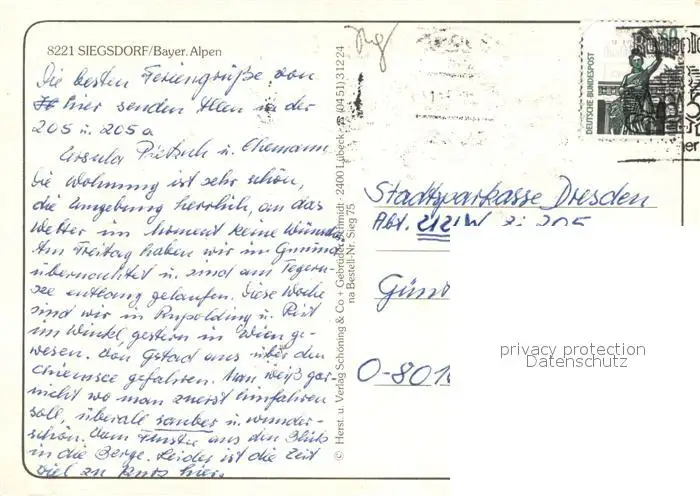 8221 SIEGSDORF/Bayer. Alpen
Die besten Feriengrüße von
hier senden Allen in der
205 u. 205a
Ursula Pietzsch u. Ehemann
Die Wohnung ist sehr schön,
die Umgebung herrlich, an das
Wetter im Moment keine Wünsche.
Am Freitag haben wir in Gmund
übernachtet u. sind am Tegern-
see entlang gelaufen. Diese Woche
sind wir in Rupolding u. Reit
im Winkel, gestern in Wien ge-
wesen. Von Gstad aus über den
Chiemsee gefahren. Man weiß gar-
nicht wo man zuerst hinfahren
soll, überall sauber u. wunder-
schön. Vom Fenster aus den Blick
in die Berge. Leider ist die Zeit
viel zu kurz hier.
© Herst. u. Verlag Schöning & Co + Gebrüder Schmidt · 2400 Lübeck · ☎ (0451) 31224
na Bestell-Nr. Sieg 75
60
DEUTSCHE BUNDESPOST
Stadtsparkasse Dresden
Abt. 2121W Zi 205
Gün
O-801
privacy protection
Datenschutz